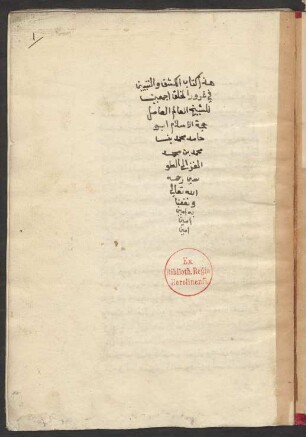 1
هذا كتاب الكشف والتبيين
في غرور الخلق اجمعين
للشيخ العالم العامل
حجة الاسلام ابو
حامد محمد بن
محمد بن محمد
الغزالي الطو
سي رحمه
الله تعالى
ونفعنا
به امين
امين
امين
Ex
Biblioth. Regia
Berolinensi.